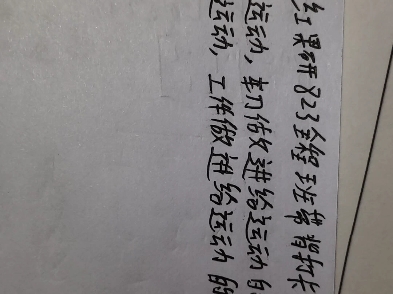 红果研823全程班带背打卡
运动,车刀做进给运动的
运动,工件做进给运动的